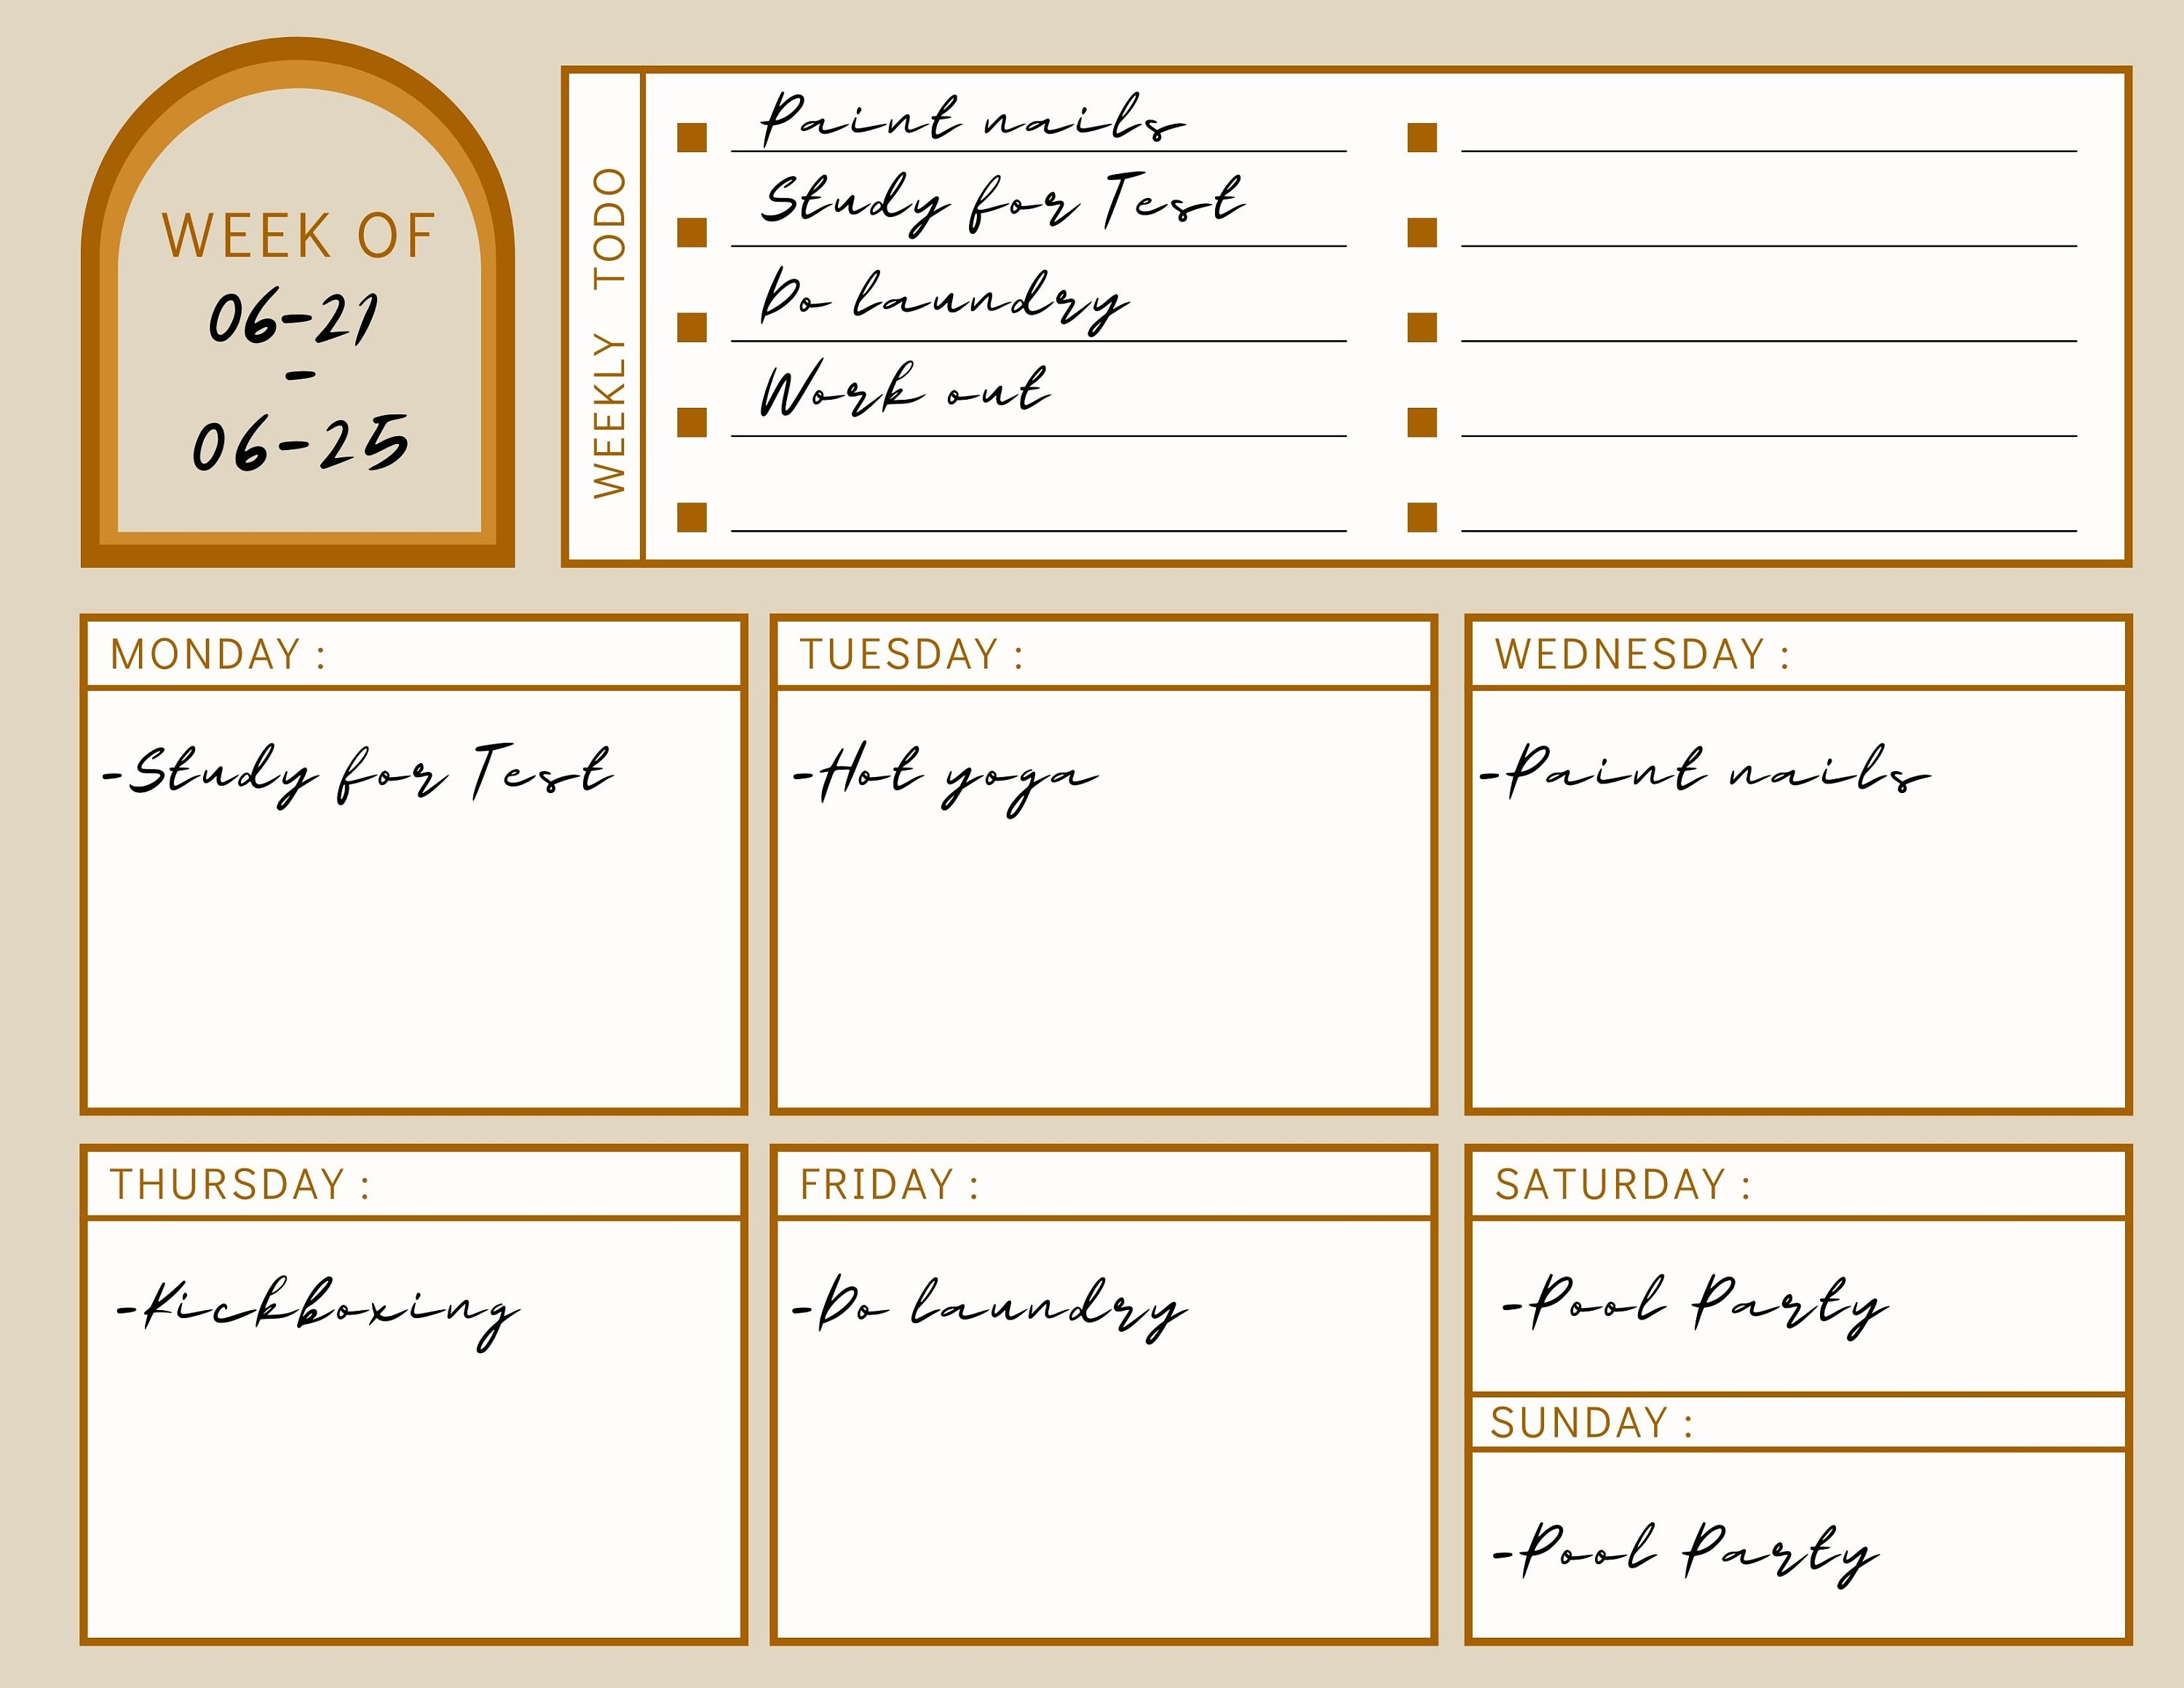 WEEK OF
06-21
-
06-25
WEEKLY TODO
Paint nails
Study for Test
Do laundry
Work out
MONDAY :
-Study for Test
TUESDAY :
-Hot yoga
WEDNESDAY :
-Paint nails
THURSDAY :
-Kickboxing
FRIDAY :
-Do laundry
SATURDAY :
-Pool Party
SUNDAY :
-Pool Party